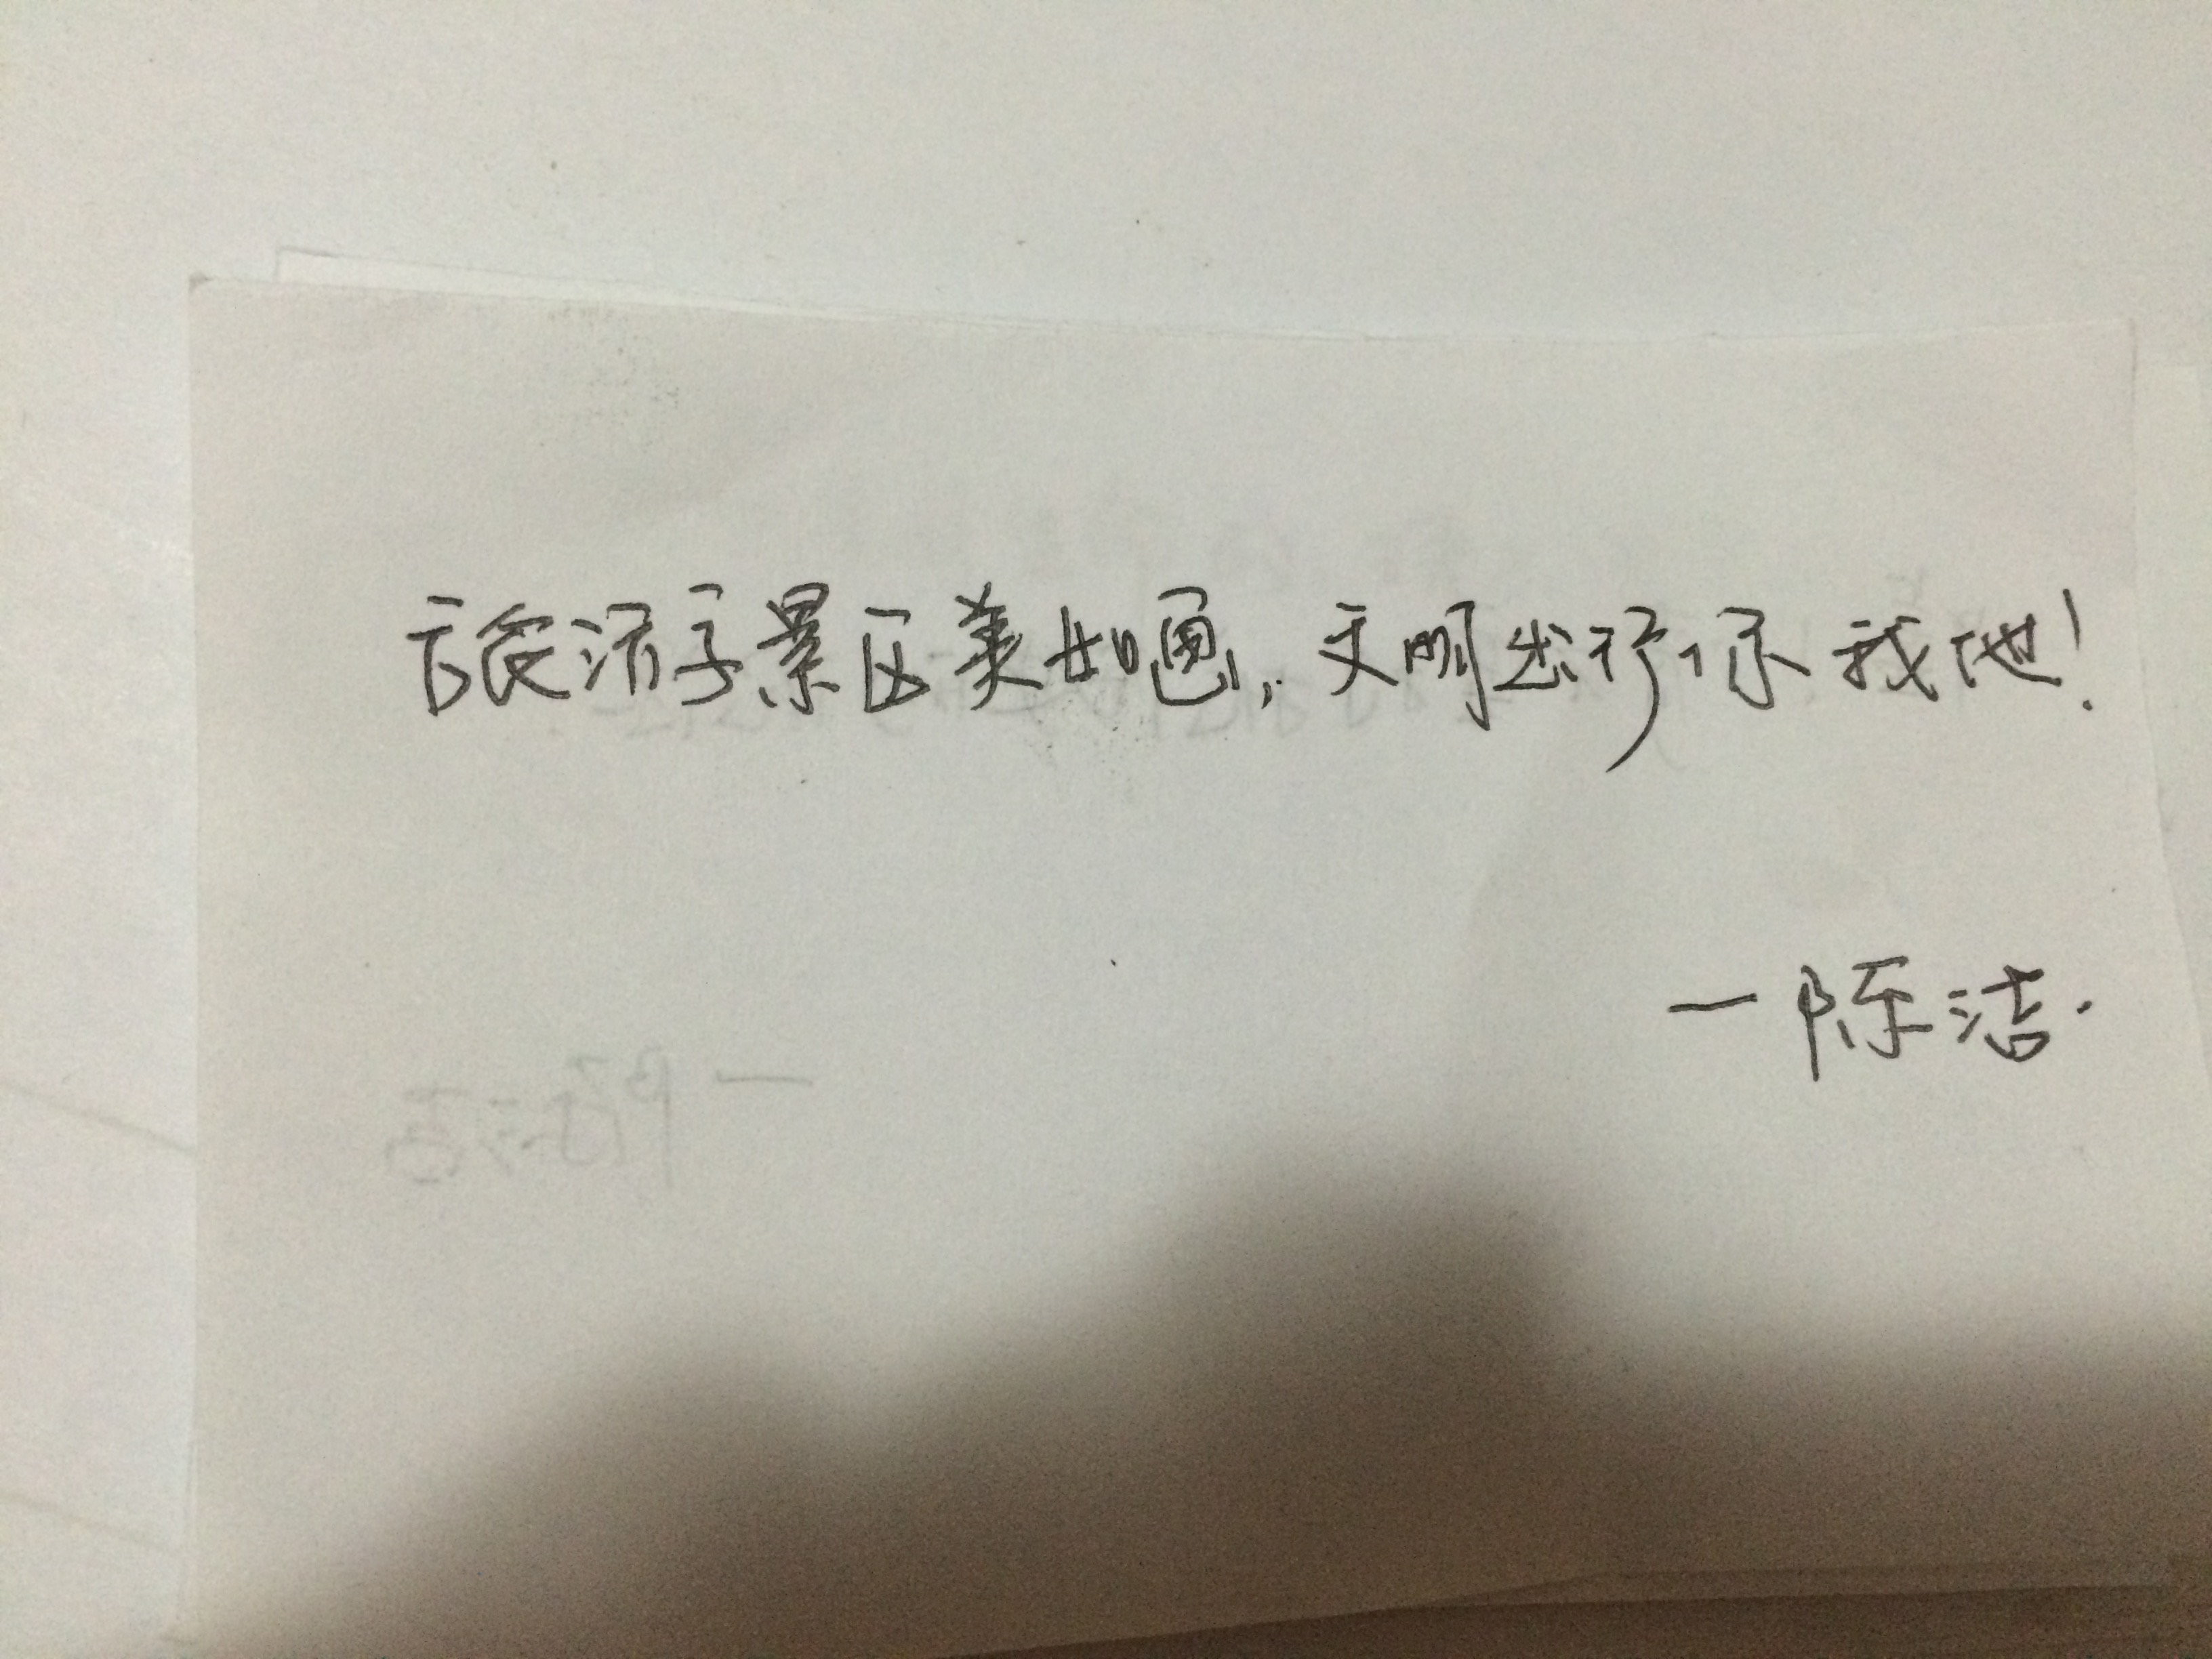 旅游景区美如画，文明出行你我他！
一陈洁.